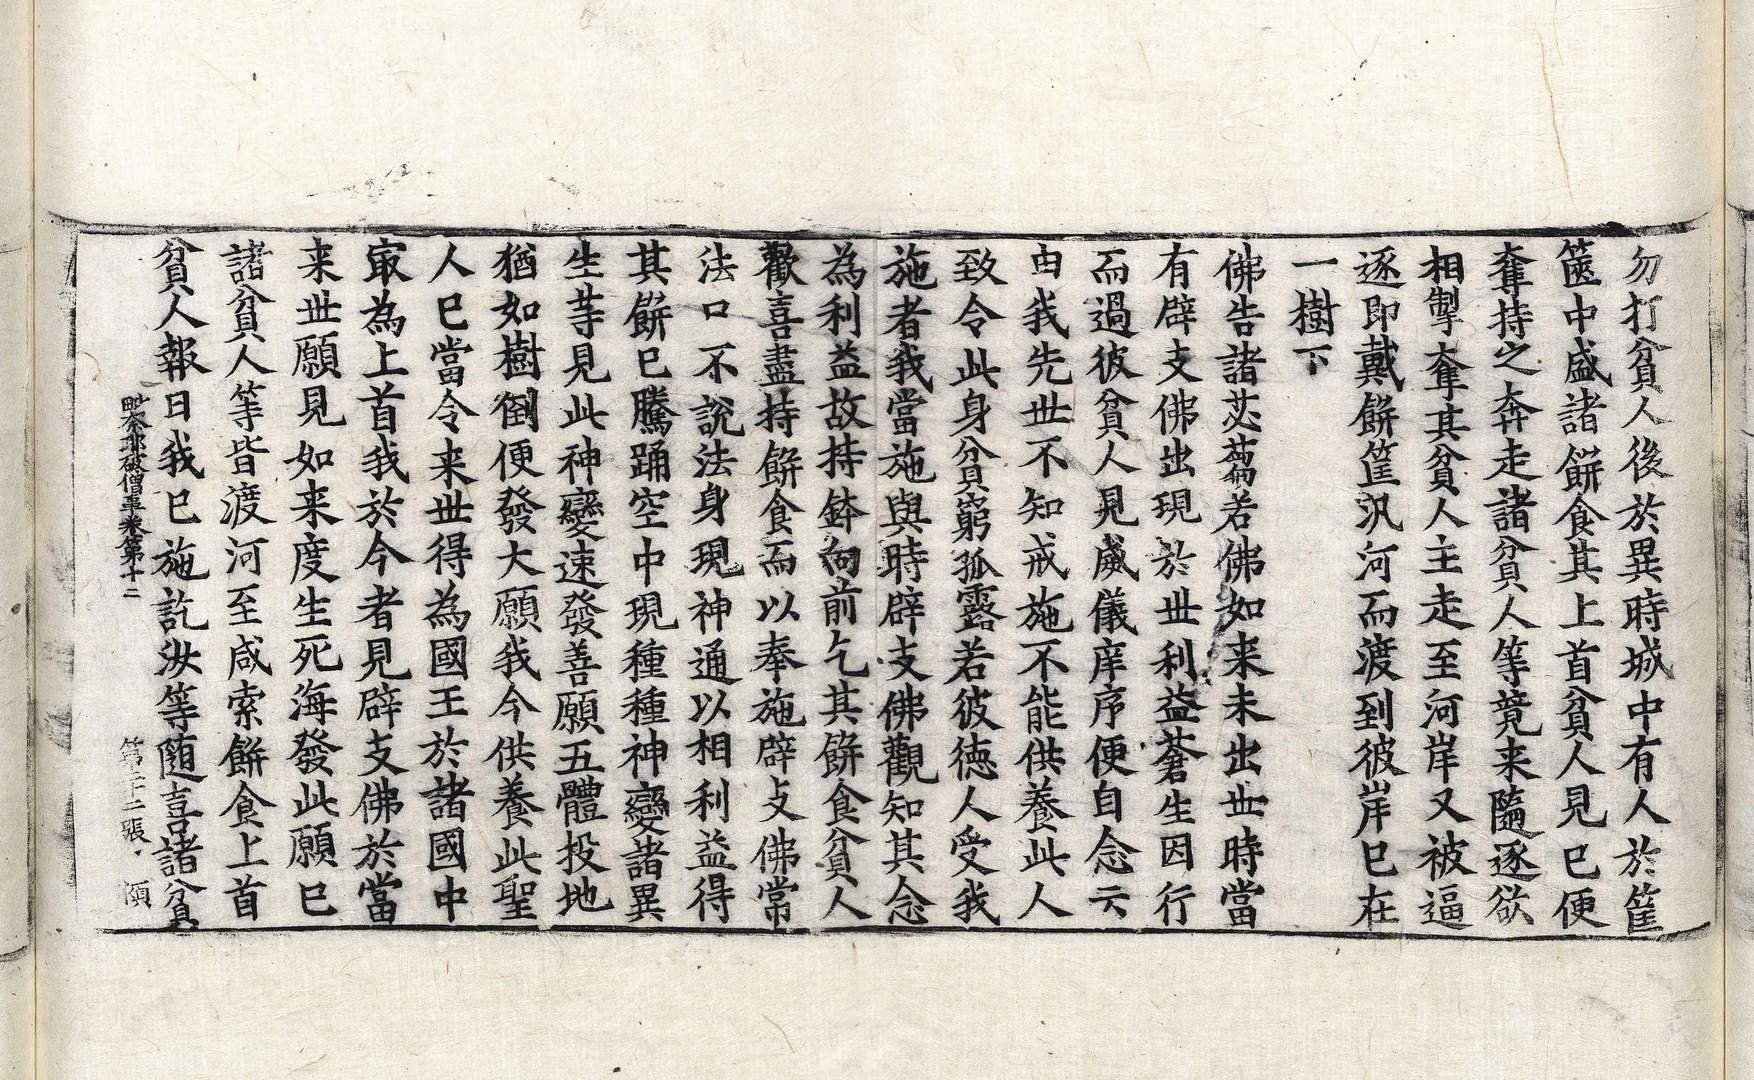 勿打貧人後於異時城中有人於筐
篋中盛諸餅食其上首貧人見已便
奪持之奔走諸貧人等竟来隨逐欲
相掣奪其貧人主走至河岸又被逼
逐即戴餅筐汎河而渡到彼岸已在
一樹下
佛告諸苾蒭若佛如来未出世時當
有辟支佛出現於世利益蒼生因行
而過彼貧人見威儀庠序便自念云
由我先世不知戒施不能供養此人
致令此身貧窮孤露若彼德人受我
施者我當施與時辟支佛觀知其念
為利益故持鉢向前乞其餅食貧人
歡喜盡持餅食而以奉施辟支佛常
法口不說法身現神通以相利益得
其餅已騰踊空中現種種神變諸異
生等見此神變速發善願五體投地
猶如樹倒便發大願我今供養此聖
人已當令来世得為國王於諸國中
㝡為上首我於今者見辟支佛於當
来世願見如来度生死海發此願已
諸貧人等皆渡河至咸索餅食上首
貧人報曰我已施訖汝等随喜諸貧
毗奈耶破僧事卷第十二 第二十二張 頎